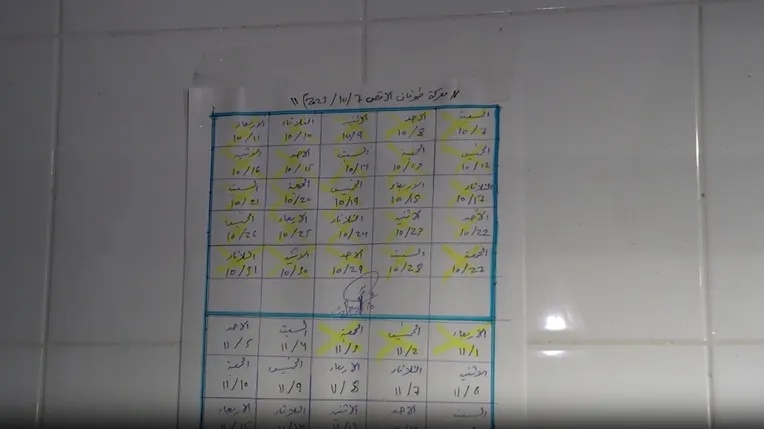 " معركة طوفان الاقصى 7/10/2023 "
السبت الاحد الاثنين الثلاثاء الاربعاء
10/7 10/8 10/9 10/10 10/11
الخميس الجمعة السبت الاحد الاثنين
10/12 10/13 10/14 10/15 10/16
الثلاثاء الاربعاء الخميس الجمعة السبت
10/17 10/18 10/19 10/20 10/21
الاحد الاثنين الثلاثاء الاربعاء الخميس
10/22 10/23 10/24 10/25 10/26
الجمعة السبت الاحد الاثنين الثلاثاء
10/27 10/28 10/29 10/30 10/31
الاربعاء الخميس الجمعة السبت الاحد
11/1 11/2 11/3 11/4 11/5
الاثنين الثلاثاء الاربعاء الخميس الجمعة
11/6 11/7 11/8 11/9 11/10
السبت الاحد الاثنين الثلاثاء الاربعاء